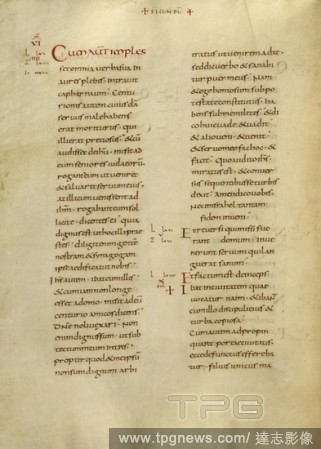 + SECUNDŪ +
VI
Cum aūt implesset omnia verba sua in
aures plebis · intravit
capharnaum · Centu
rionis autem cuiusdā
servus male habens
erat moriturus · qui
illi erat preciosus · &cū
audisset de ihū · misit ad
eum seniores iudaeorū
rogans eum ut veniret
& salvaret servum eius
at illi cum venissent ad
ihm · rogabant eum sol
licite · dicentes ei · quia
dignus est ut hoc illi prę
stes · diligit enim gentē
nostram & synagogam
ipse aedificavit nobis
Ihs autem · ibat cum illis
& cum iam non longe
esset a domo · misit ad eū
centurio amicos dicens
Dne noli vexari · Non
enim dignus sum · ut sub
tectum meum intres ·
propter quod & me ipsum
non sum dignum arbi
tratus ut venirem ad te
sed dic verbo & sanabi
tur puer meus · Nam
& ego homo sum sub po
testate constitutus · ha
bens sub me milites · & di
co huic vade · & vadit
& alio veni · & venit
& servo meo fac hoc · &
facit · Quo audito ihs
miratus est · & conver
sus sequentibus se turbis
dixit · amen dico vobis ·
Nec in israhel tantam
fidem inveni
Et reversi qui missi fue
rant · domum · inve
nerunt servum qui lan
guerat sanum ·
Et factum est deinceps
ibat in civitatem quae
vocatur naim · & ibant
cum illo discipuli eius &
turba copiosa
Cum autem adpropin
quaret portae civitatis
ecce defunctus effereba
tur · filius unicus ma
TPG
www.tpgnews.com / 達志影像